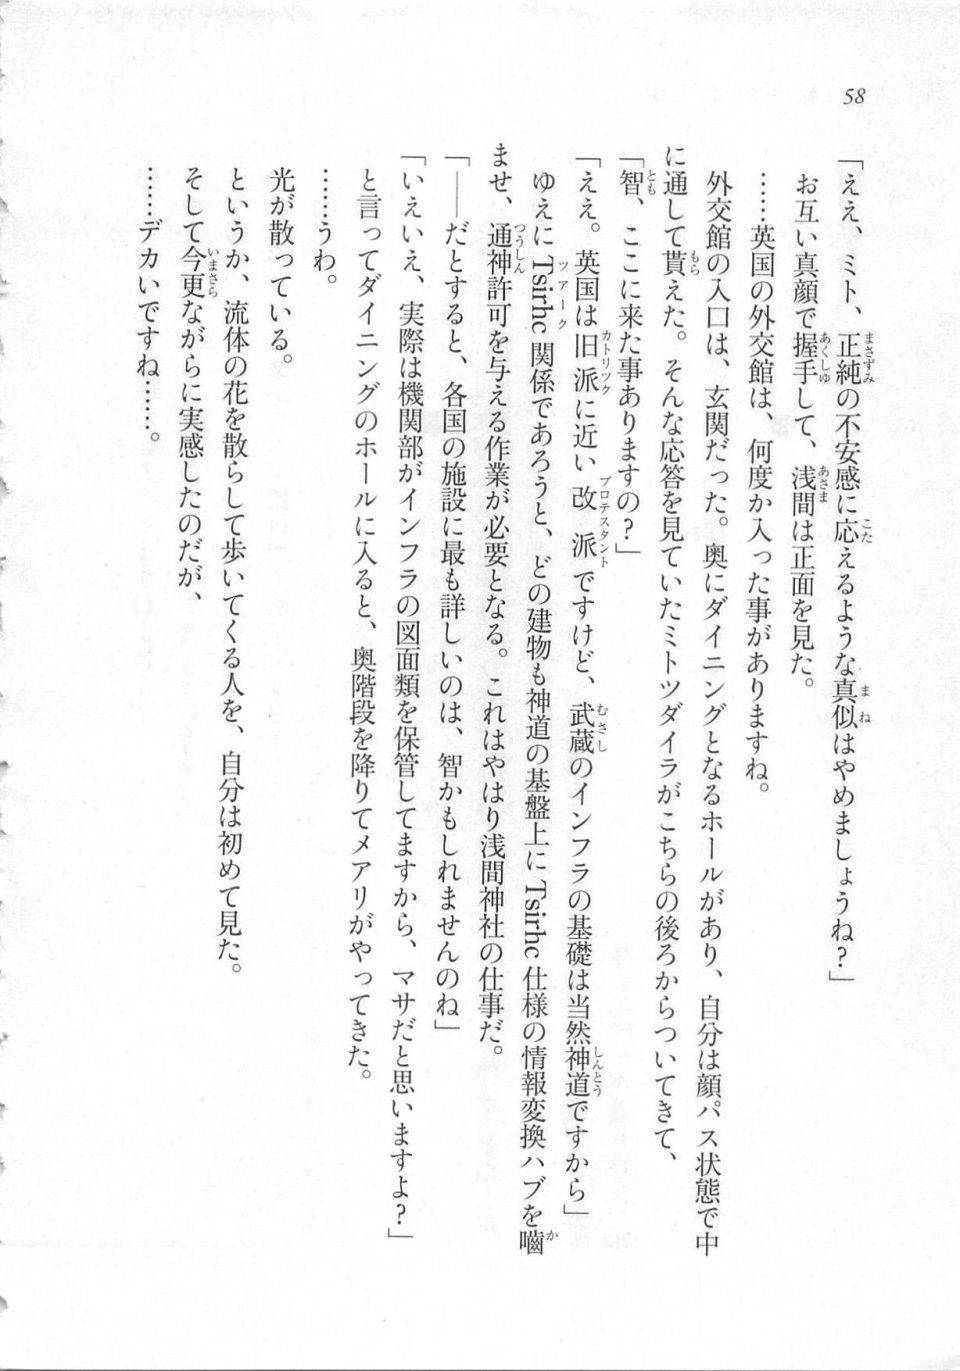 58
「ええ、ミト、正純の不安感に応えるような真似はやめましょうね？」
お互い真顔で握手して、浅間は正面を見た。
……英国の外交館は、何度か入った事がありますね。
外交館の入口は、玄関だった。奥にダイニングとなるホールがあり、自分は顔パス状態で中
に通して貰えた。そんな応答を見ていたミトツダイラがこちらの後ろからついてきて、
「智、ここに来た事ありますの？」
「ええ。英国は旧派に近い改派ですけど、武蔵のインフラの基礎は当然神道ですから」
ゆえにTsirhc関係であろうと、どの建物も神道の基盤上にTsirhc仕様の情報変換ハブを嚙
ませ、通神許可を与える作業が必要となる。これはやはり浅間神社の仕事だ。
「――だとすると、各国の施設に最も詳しいのは、智かもしれませんのね」
「いえいえ、実際は機関部がインフラの図面類を保管してますから、マサだと思いますよ？」
と言ってダイニングのホールに入ると、奥階段を降りてメアリがやってきた。
……うわ。
光が散っている。
というか、流体の花を散らして歩いてくる人を、自分は初めて見た。
そして今更ながらに実感したのだが、
……デカいですね……。